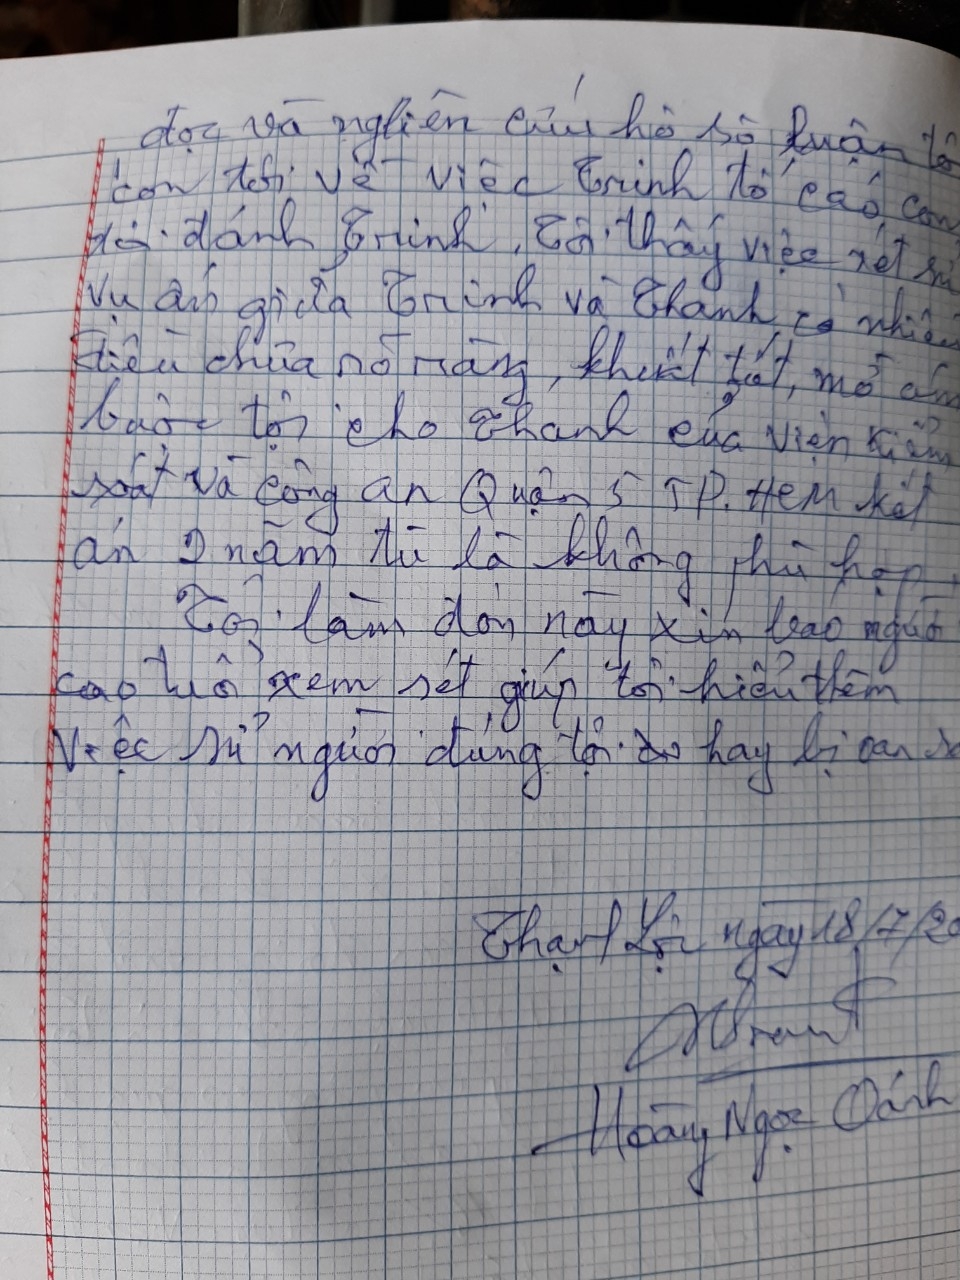 đọc và nghiên cứu hồ sơ luận tội
con tôi về việc Trinh tố cáo con
tôi đánh Trinh, Tôi thấy việc xét sử
vụ án giữa Trinh và Thành có nhiều
điều chưa rõ ràng, khuất tất, mớ ám
buộc tội cho Thành của viện kiểm
soát và công an Quận 5 TP. HCM kết
án 2 năm tù là không phù hợp.
Tôi làm đơn này xin báo người
cao tuổi xem sét giúp tôi hiểu thêm
Việc sử người đúng tội hay bị oan
Thạnh Lội ngày 18/7/20
Hoàng Ngọc Oánh